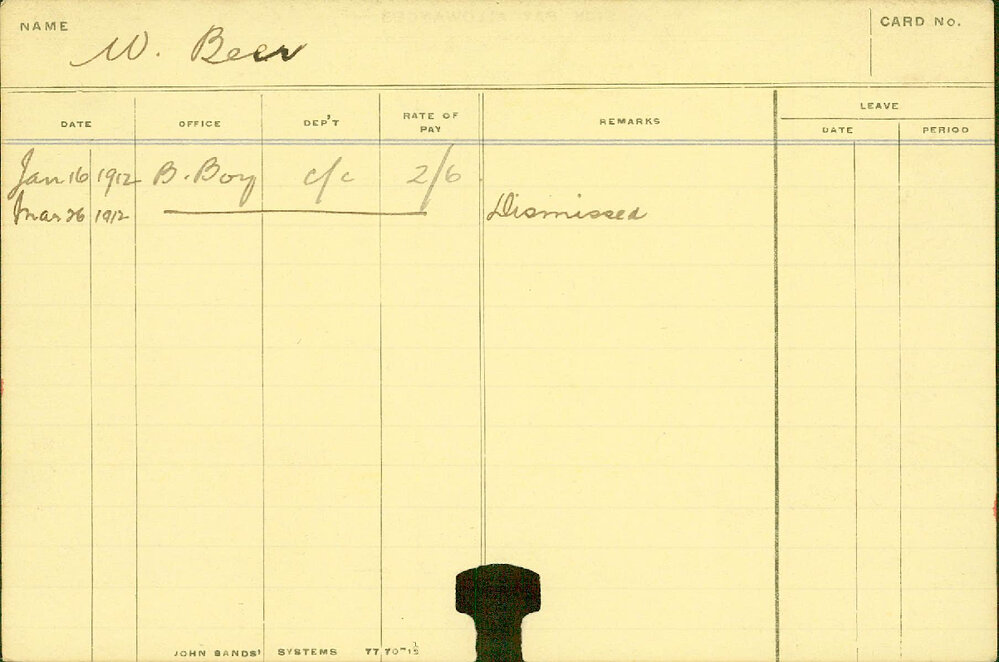 NAME W. Beer CARD No.
LEAVE
DATE OFFICE DEP'T RATE OF PAY REMARKS DATE PERIOD
Jan 16 1912 B. Boy c/c 2/6
Mar 26 1912 Dismissed
JOHN SANDS' SYSTEMS